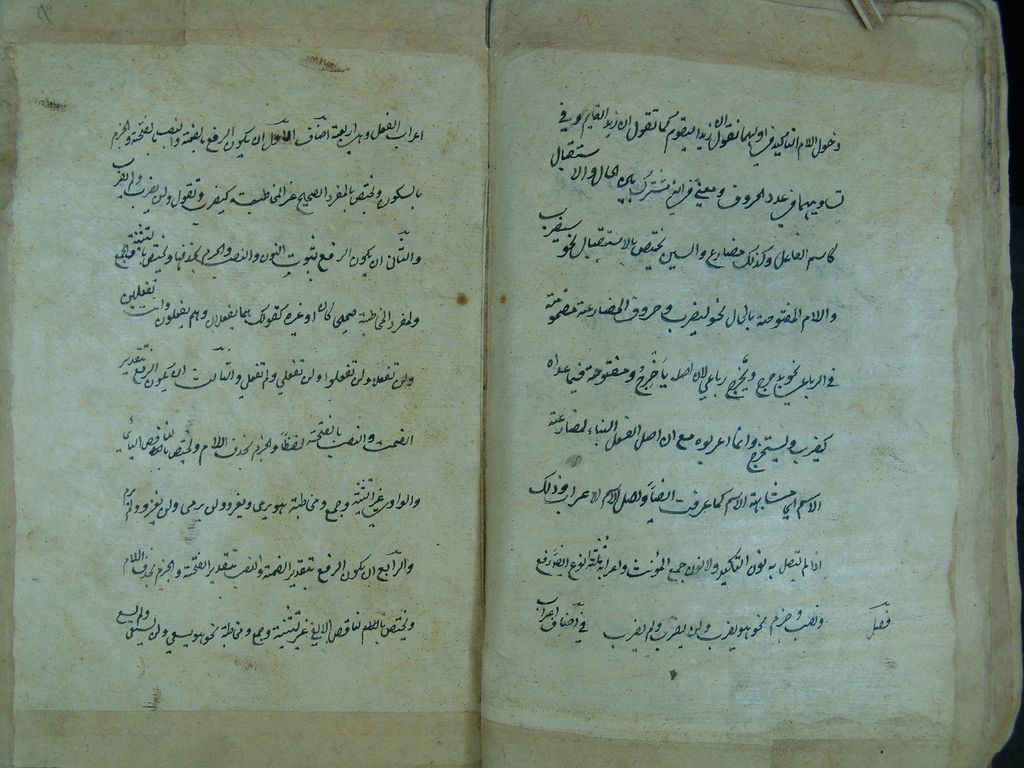 دخول لام التاكيد في اولهما تقول ان زيدا ليقوم كما تقول ان زيدا لقايم وفي
تساويهما في عدد الحروف ومعنى في انه مشترك بين الحال والاستقبال
كاسم الفاعل وكذلك مضارع والسين يختص بالاستقبال نحو سيضرب
واللام المفتوحة بالحال نحو ليضرب وحروف المضارعة مضمومة
في الرباعي نحو يدحرج ويخرج رباعي لان اصله يأخرج ومفتوحة فيما عداه
كيضرب ويستخرج وانما اعربوه مع ان اصل الفعل البناء لمضارعته
الاسم اي مشابهة الاسم كما عرفت ايضا واصل الاسم الاعراب وذلك
اذا لم يتصل به نون التاكيد ولا نون جمع المؤنث واعرابه ثلثة انواع ايضا رفع
ونصب وجزم نحو هو يضرب ولن يضرب ولم يضرب فصل في اصناف اعراب
اعراب الفعل وهي اربعة اصناف الاول ان يكون الرفع بالضمة والنصب بالفتحة والجزم
بالسكون ويختص بالمفرد الصحيح غير المخاطبة كيضرب وتقول ولن يضرب ولم يضرب
والثاني ان يكون الرفع بثبوت النون والنصب والجزم بحذفها ويختص بالتثنية والجمع
والمفرد المخاطبة صحيحا كان او غيره كقولك هما يفعلان وهم يفعلون وانت تفعلين
ولن تفعلا ولن تفعلوا ولن تفعلي ولم تفعلي والثالث ان يكون الرفع بتقدير
الضمة والنصب بالفتحة لفظا والجزم بحذف اللام ويختص بالناقص اليائي
والواوي غير تثنية وجمع ومخاطبة هو يرمي ويغزو ولن يرمي ولن يغزو ولم يرم
والرابع ان يكون الرفع بتقدير الضمة والنصب بتقدير الفتحة والجزم بحذف اللام
ويختص بالناقص الالفي غير تثنية وجمع ومخاطبة نحو هو يسعى ولن يسعى ولم يسع